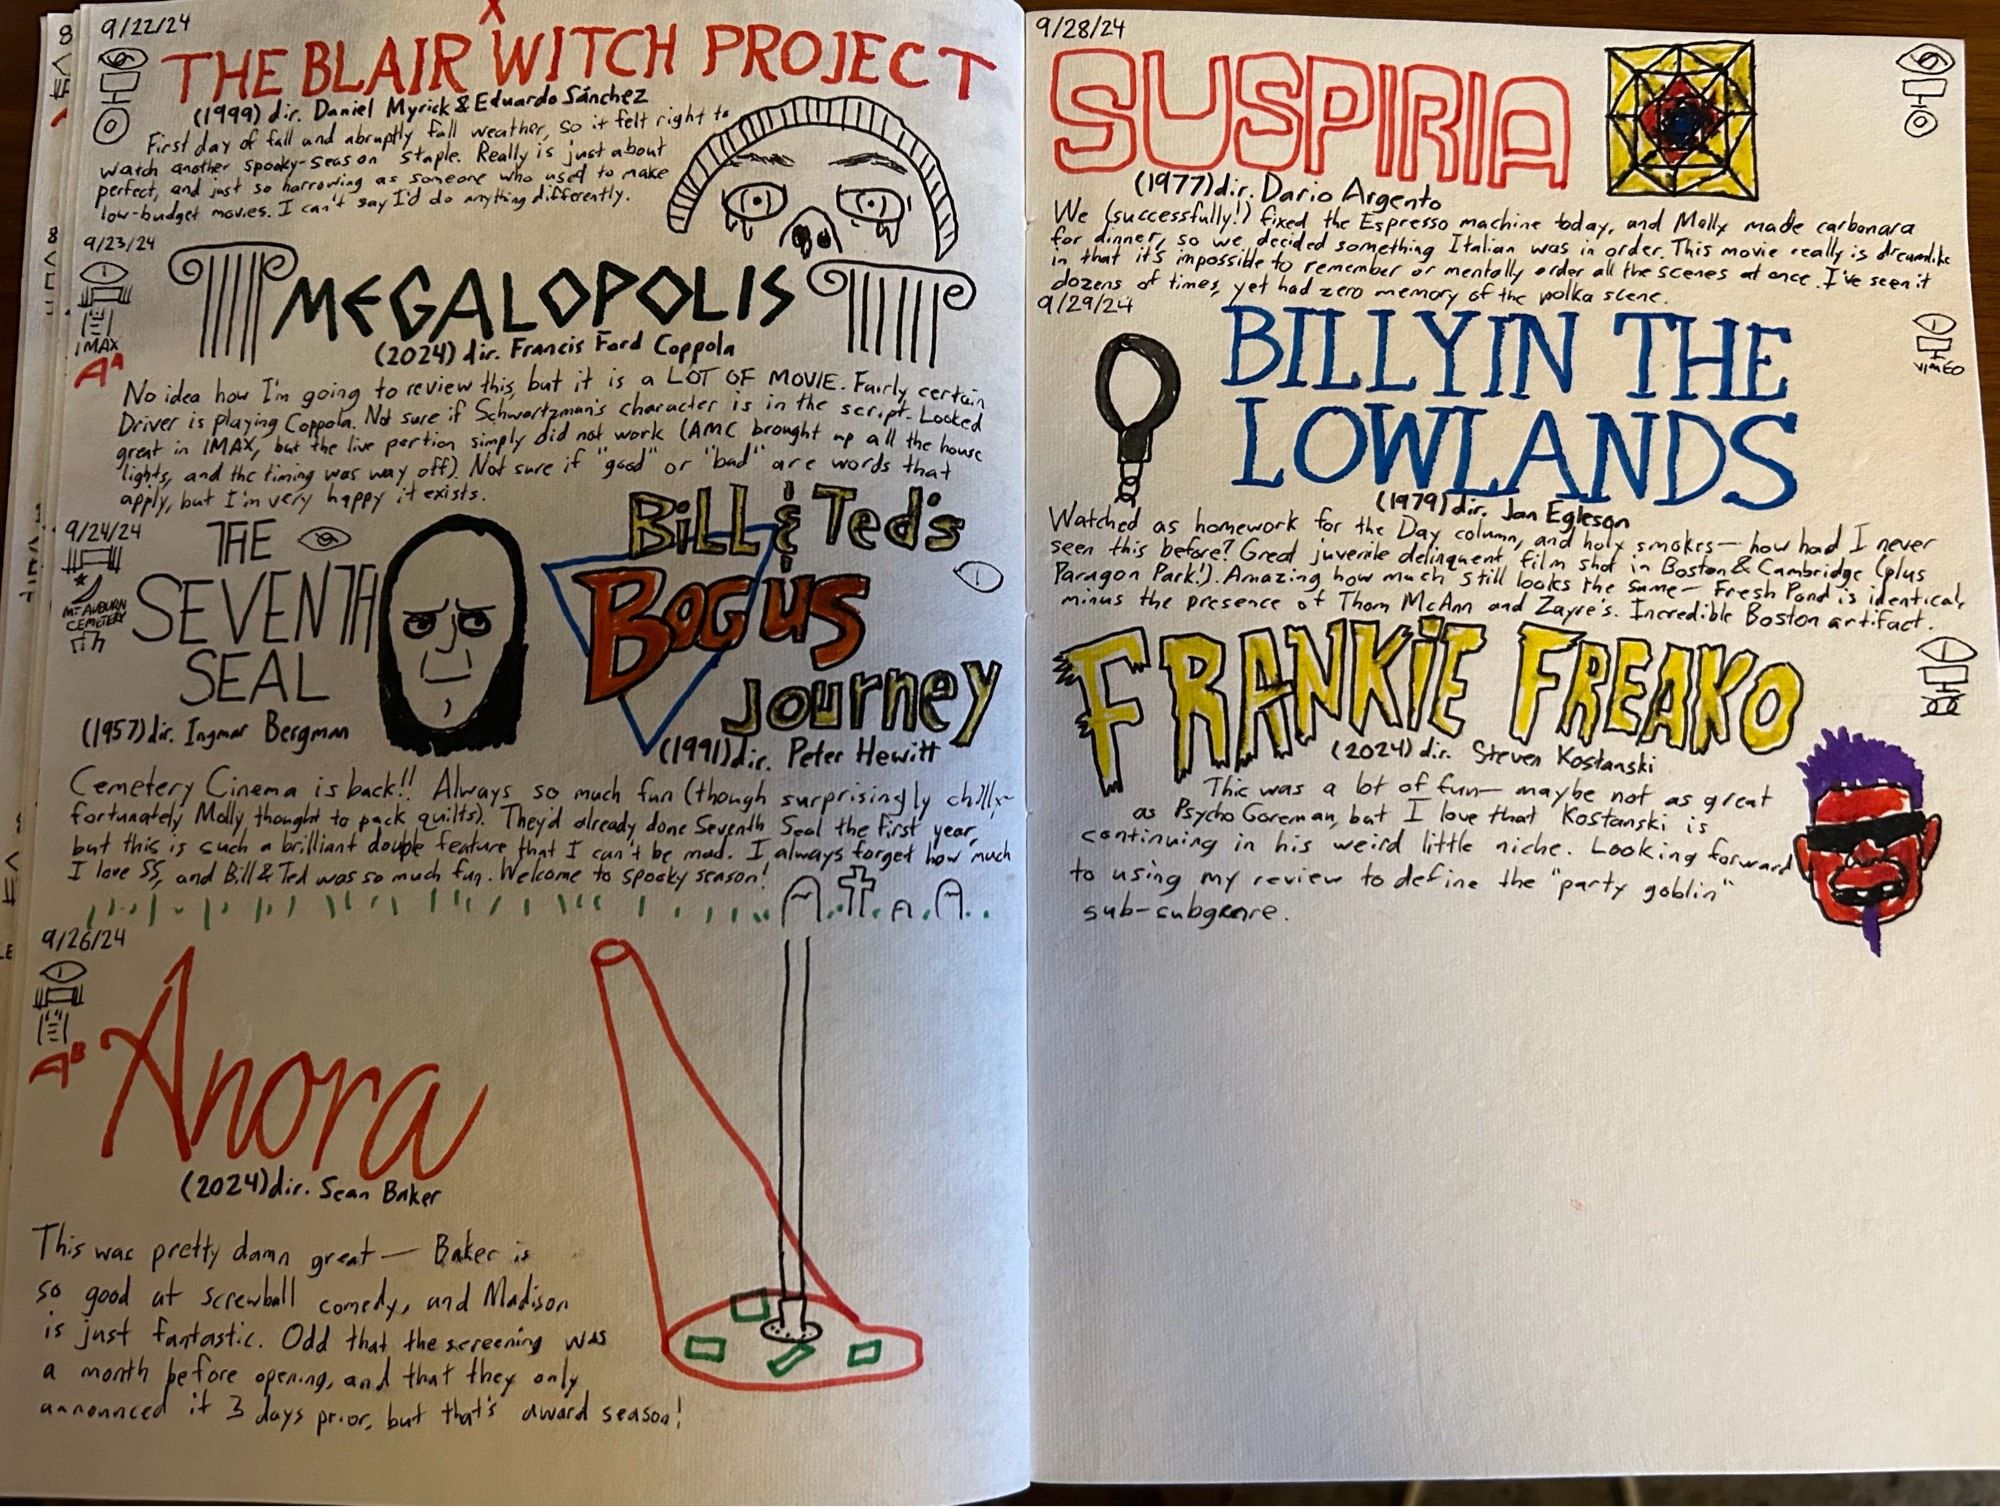 9/22/24
THE BLAIR WITCH PROJECT
(1999) dir. Daniel Myrick & Eduardo Sánchez
First day of fall and abruptly fall weather, so it felt right to
watch another spooky-season staple. Really is just about
perfect, and just so harrowing as someone who used to make
low-budget movies. I can't say I'd do anything differently.
9/23/24
MEGALOPOLIS
IMAX
(2024) dir. Francis Ford Coppola
AA
No idea how I'm going to review this, but it is a LOT OF MOVIE. Fairly certain
Driver is playing Coppola. Not sure if Schwartzman's character is in the script. Looked
great in IMAX, but the live portion simply did not work (AMC brought up all the house
lights, and the timing was way off). Not sure if "good" or "bad" are words that
apply, but I'm very happy it exists.
9/24/24
MT AUBURN
CEMETERY
THE
SEVENTH
SEAL
(1957) dir. Ingmar Bergman
Bill & Ted's
Bogus
Journey
(1991) dir. Peter Hewitt
Cemetery Cinema is back!! Always so much fun (though surprisingly chilly–
fortunately Molly thought to pack quilts). They'd already done Seventh Seal the first year,
but this is such a brilliant double feature that I can't be mad. I always forget how much
I love SS, and Bill & Ted was so much fun. Welcome to spooky season!
9/26/24
AB
Anora
(2024) dir. Sean Baker
This was pretty damn great — Baker is
so good at screwball comedy, and Madison
is just fantastic. Odd that the screening was
a month before opening, and that they only
announced it 3 days prior, but that's award season!
9/28/24
SUSPIRIA
(1977) dir. Dario Argento
We (successfully!) fixed the Espresso machine today, and Molly made carbonara
for dinner, so we decided something Italian was in order. This movie really is dreamlike
in that it's impossible to remember or mentally order all the scenes at once. I've seen it
dozens of times, yet had zero memory of the polka scene.
9/29/24
BILLY IN THE
LOWLANDS
VIMEO
(1979) dir. Jan Egleson
Watched as homework for the Day column, and holy smokes — how had I never
seen this before? Great juvenile delinquent film shot in Boston & Cambridge (plus
Paragon Park!). Amazing how much still looks the same — Fresh Pond is identical,
minus the presence of Thom McAnn and Zayre's. Incredible Boston artifact.
FRANKIE FREAKO
(2024) dir. Steven Kostanski
This was a lot of fun — maybe not as great
as Psycho Goreman, but I love that Kostanski is
continuing in his weird little niche. Looking forward
to using my review to define the "party goblin"
sub-subgenre.